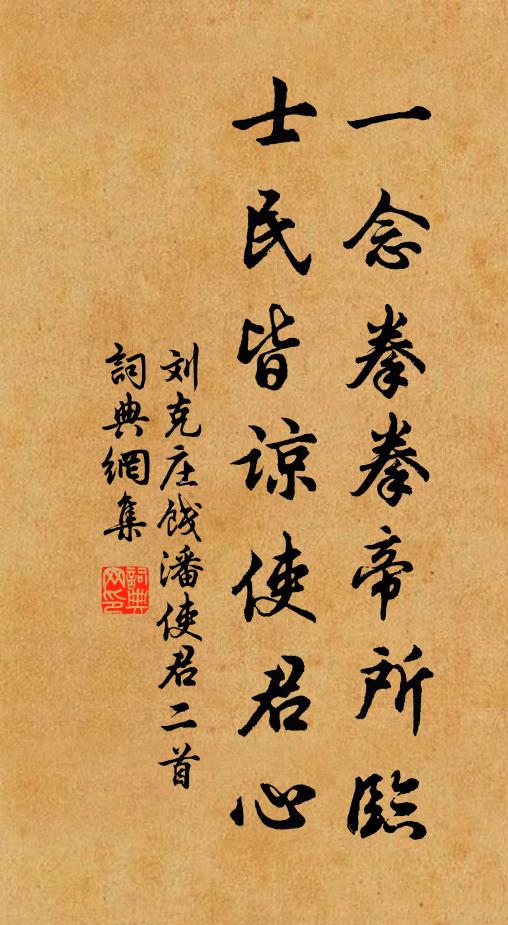 一念拳拳帝所臨
士民皆谅使君心
刘克庄饯潘使君二首
詞典網集
詞典网印